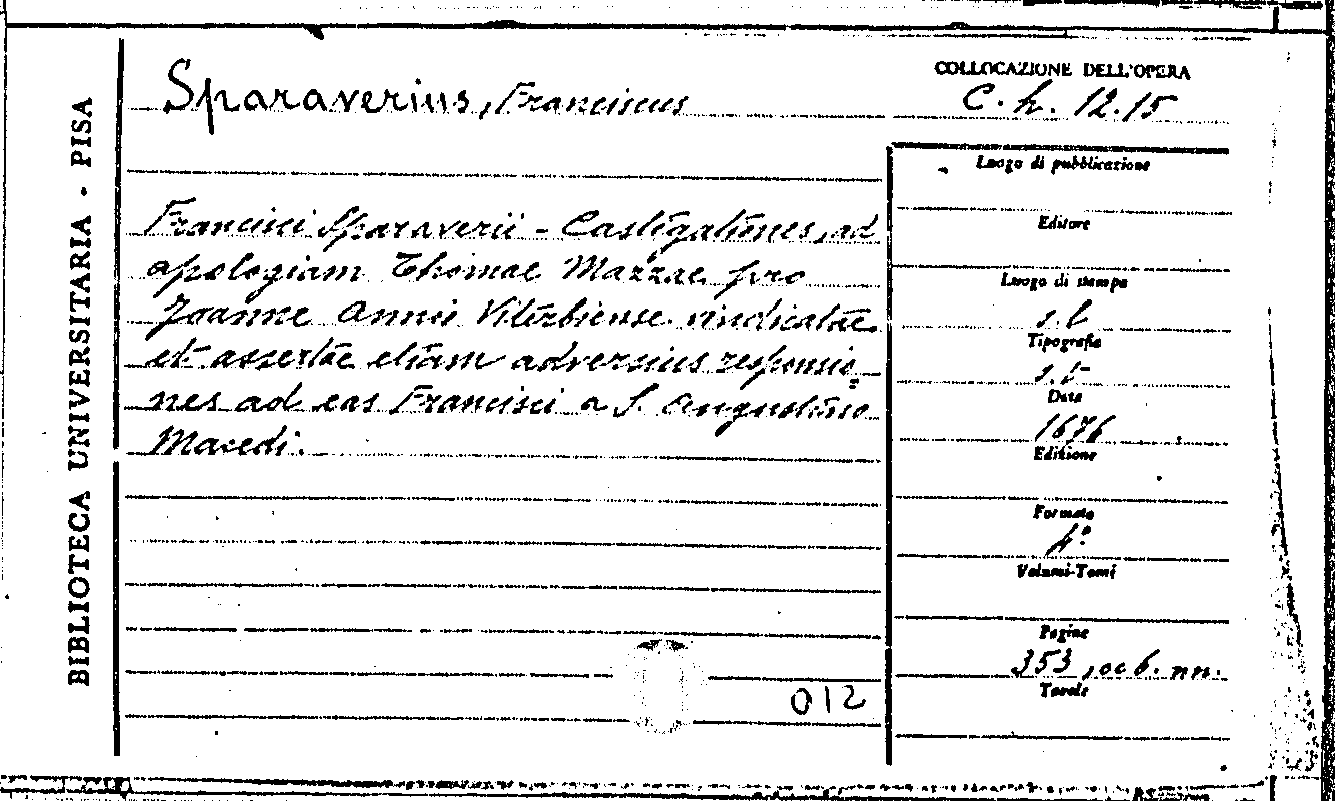 BIBLIOTECA UNIVERSITARIA - PISA
Sparaverius, Franciscus
COLLOCAZIONE DELL'OPERA
C. h. 12.15
Francisci Sparaverii - Castigationes, ad
apologiam Thomae Mazzae pro
Joanne Annio Viterbiense vindicatae
et assertae etiam adversius responsio=
nes ad eas Francisci a S. Augustino
Macedi.
012
Luogo di pubblicazione
Editore
Luogo di stampa
s.l
Tipografia
s.t
Data
1676
Edizione
Formato
4º
Volumi-Tomi
Pagine
353, 6. nn.
Tavole